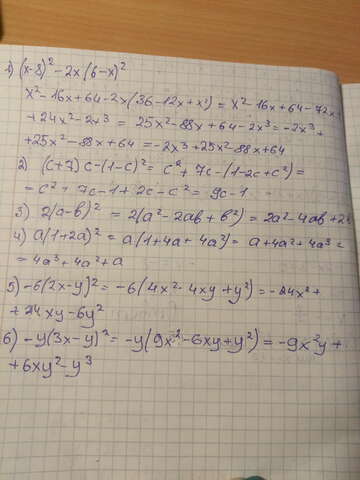 1) (x-8)² - 2x(6-x)²
x² - 16x + 64 - 2x(36 - 12x + x²) = x² - 16x + 64 - 72x +
+ 24x² - 2x³ = 25x² - 88x + 64 - 2x³ = -2x³ +
+ 25x² - 88x + 64 = -2x³ + 25x² - 88x + 64
2) (c+7)c - (1-c)² = c² + 7c - (1 - 2c + c²) =
= c² + 7c - 1 + 2c - c² = 9c - 1
3) 2(a-b)² = 2(a² - 2ab + b²) = 2a² - 4ab + 2
4) a(1+2a)² = a(1 + 4a + 4a²) = a + 4a² + 4a³ =
= 4a³ + 4a² + a
5) -6(2x-y)² = -6(4x² - 4xy + y²) = -24x² +
+ 24xy - 6y²
6) -y(3x-y)² = -y(9x² - 6xy + y²) = -9x²y +
+ 6xy² - y³